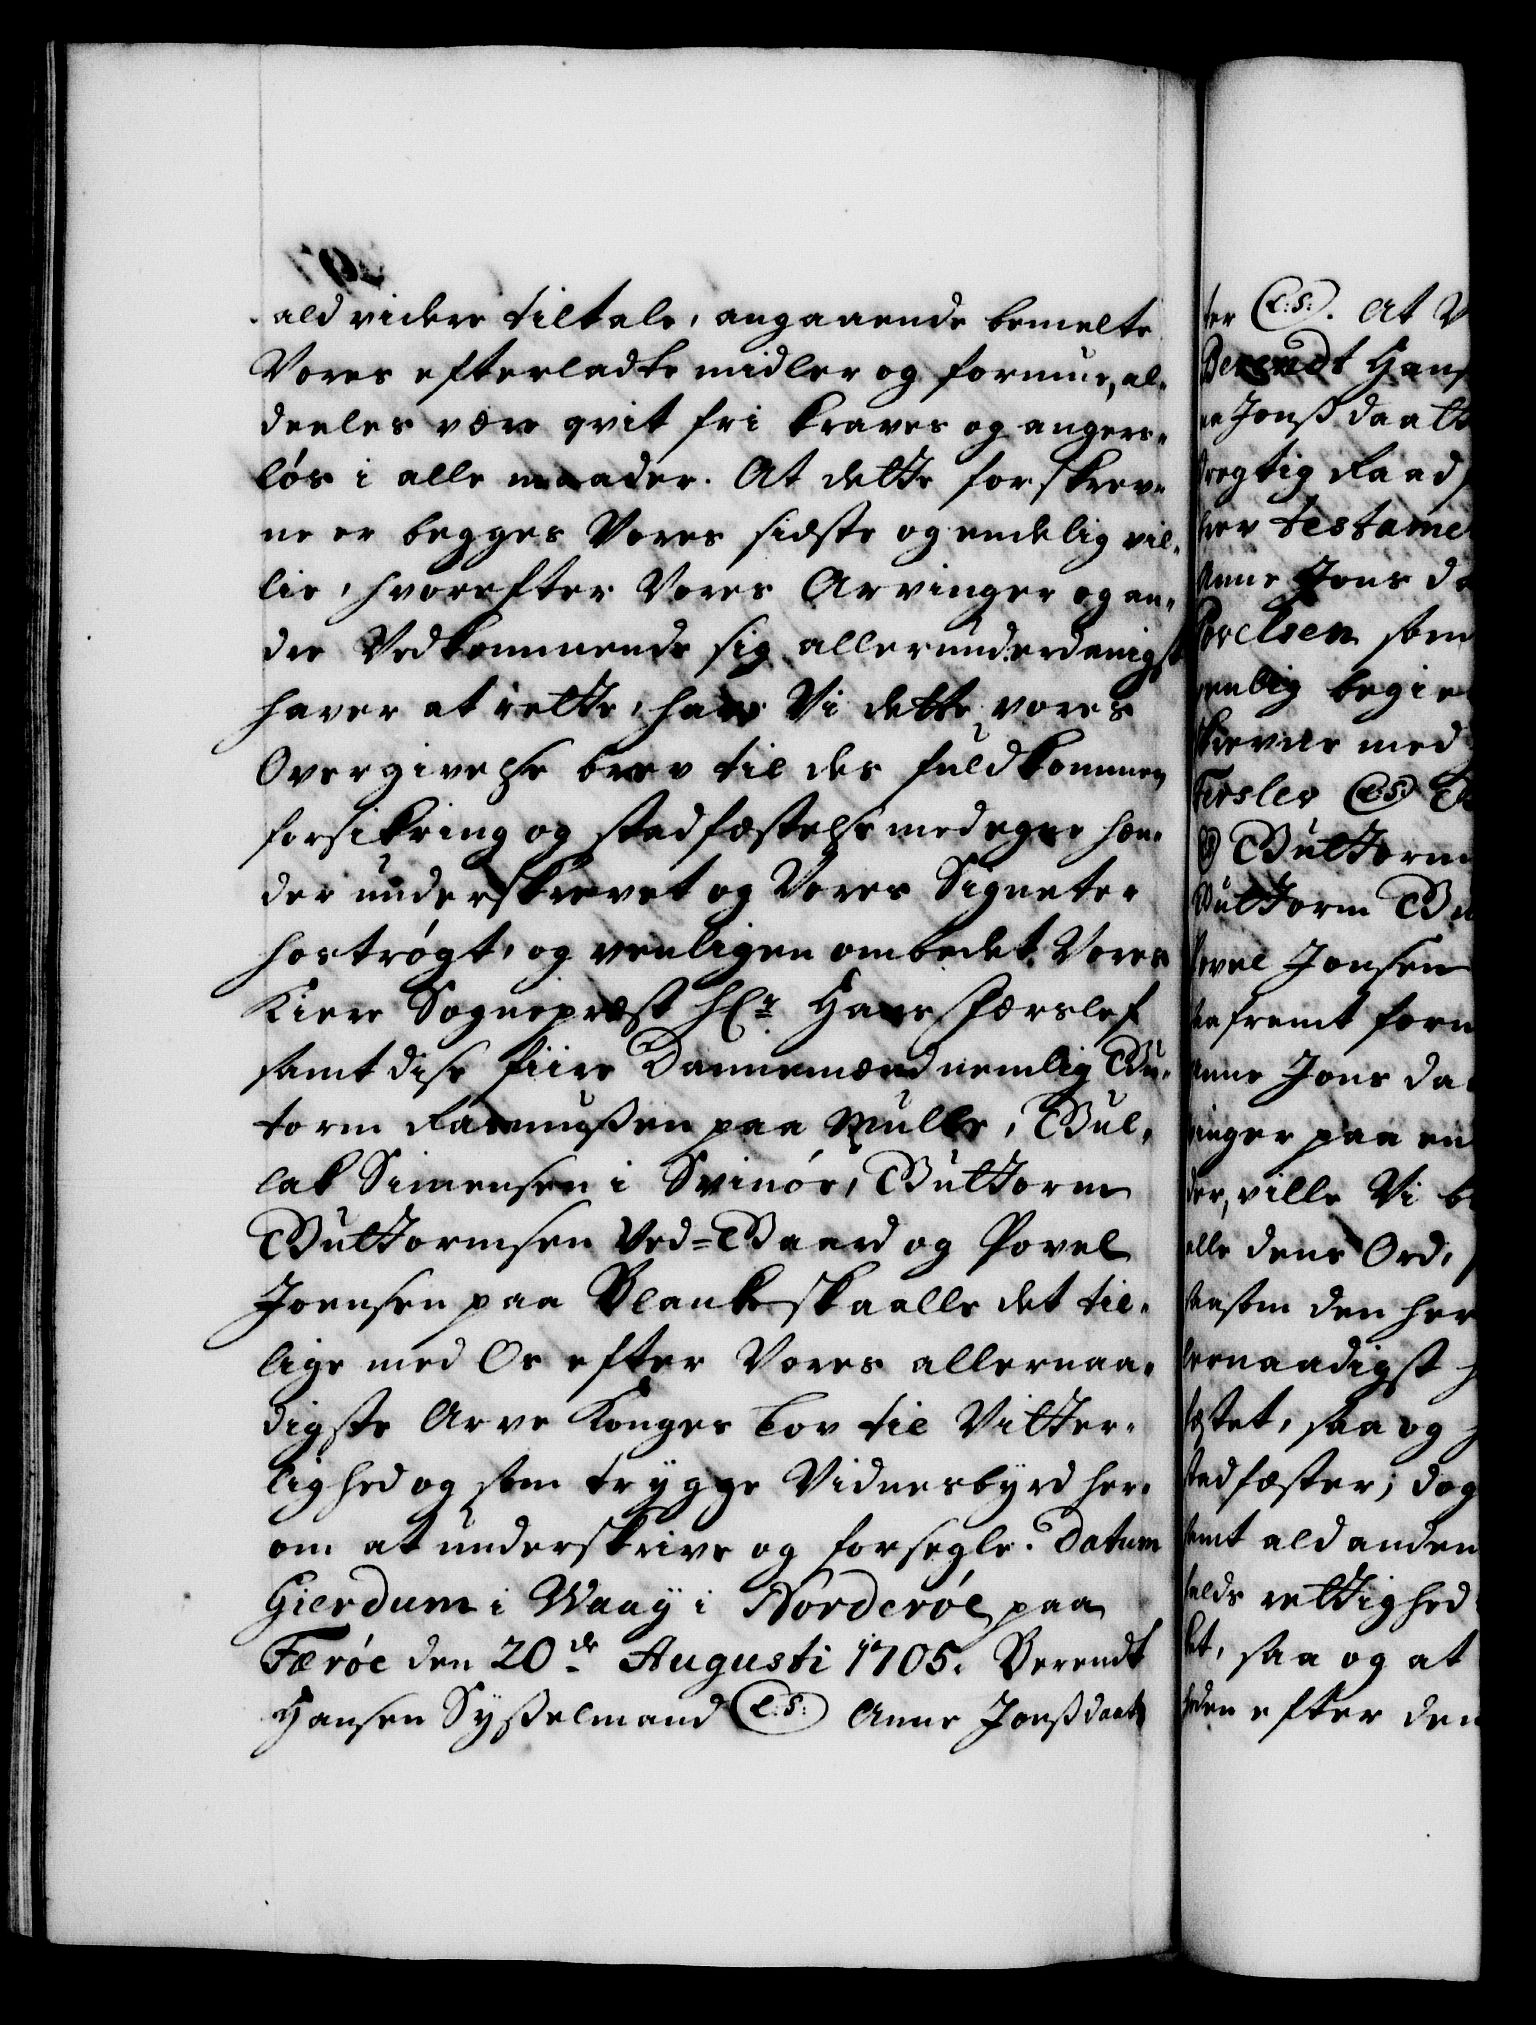 ald videre tiltale, angaaende bemelte
Vores efterladte midler og formue, al-
deeles være qvit fri kraves og angers-
løs i alle maader. At dette forskrev-
ne er begges Vores sidste og endelig vil-
lie, hvorefter Vores Arvinger og an-
dre Vedkommende sig allerunderdanigst
haver at rette, have Vi dette vores
Overgivelse brev til des fuldkommen
forsikring og stadfæstelse med egne hæn-
der underskrevet og Vores Signeter
hostrøgt, og venligen ombedet Vores
Kiere Sognepræst Hr. Hans Færslef
samt dise fiire Dannemænd nemlig Gu-
torm Rasmußen paa Mulle, Gul-
lak Simensen i Svinøe, Guttorm
Guttormsen Ved-Gaard og Povel
Joensen paa Blankskaalle det til-
lige med Os efter Vores allernaa-
digste Arve Konges Lov til Vitter-
lighed og som trygge Vidnesbyrd her-
om at underskrive og forsegle. Datum
Gierdum i Waag i Norderøe paa
Færøe den 20de Augusti 1705. Berendt
Hansen Sysselmand (L:S:) Anne Jonßdaat
ter (L:S:). At V
Berendt Hans
ne Jonßdaatt
tregtig Raad
brev testame
Anne Jons da
Povelsen som
venlig begie
skevne med
Ferslev (L:S:)
Guttorm
Guttorm Gu
Povel Jonsen
saafremt forn
Anne Jons da
vinger paa en
der, ville Vi b
alle dens Ord,
saasom den her
lernaadigst
fæstet, saa og
stadfæster; dog
samt ald anden
falds rettighed
ket, saa og at
heden efter den